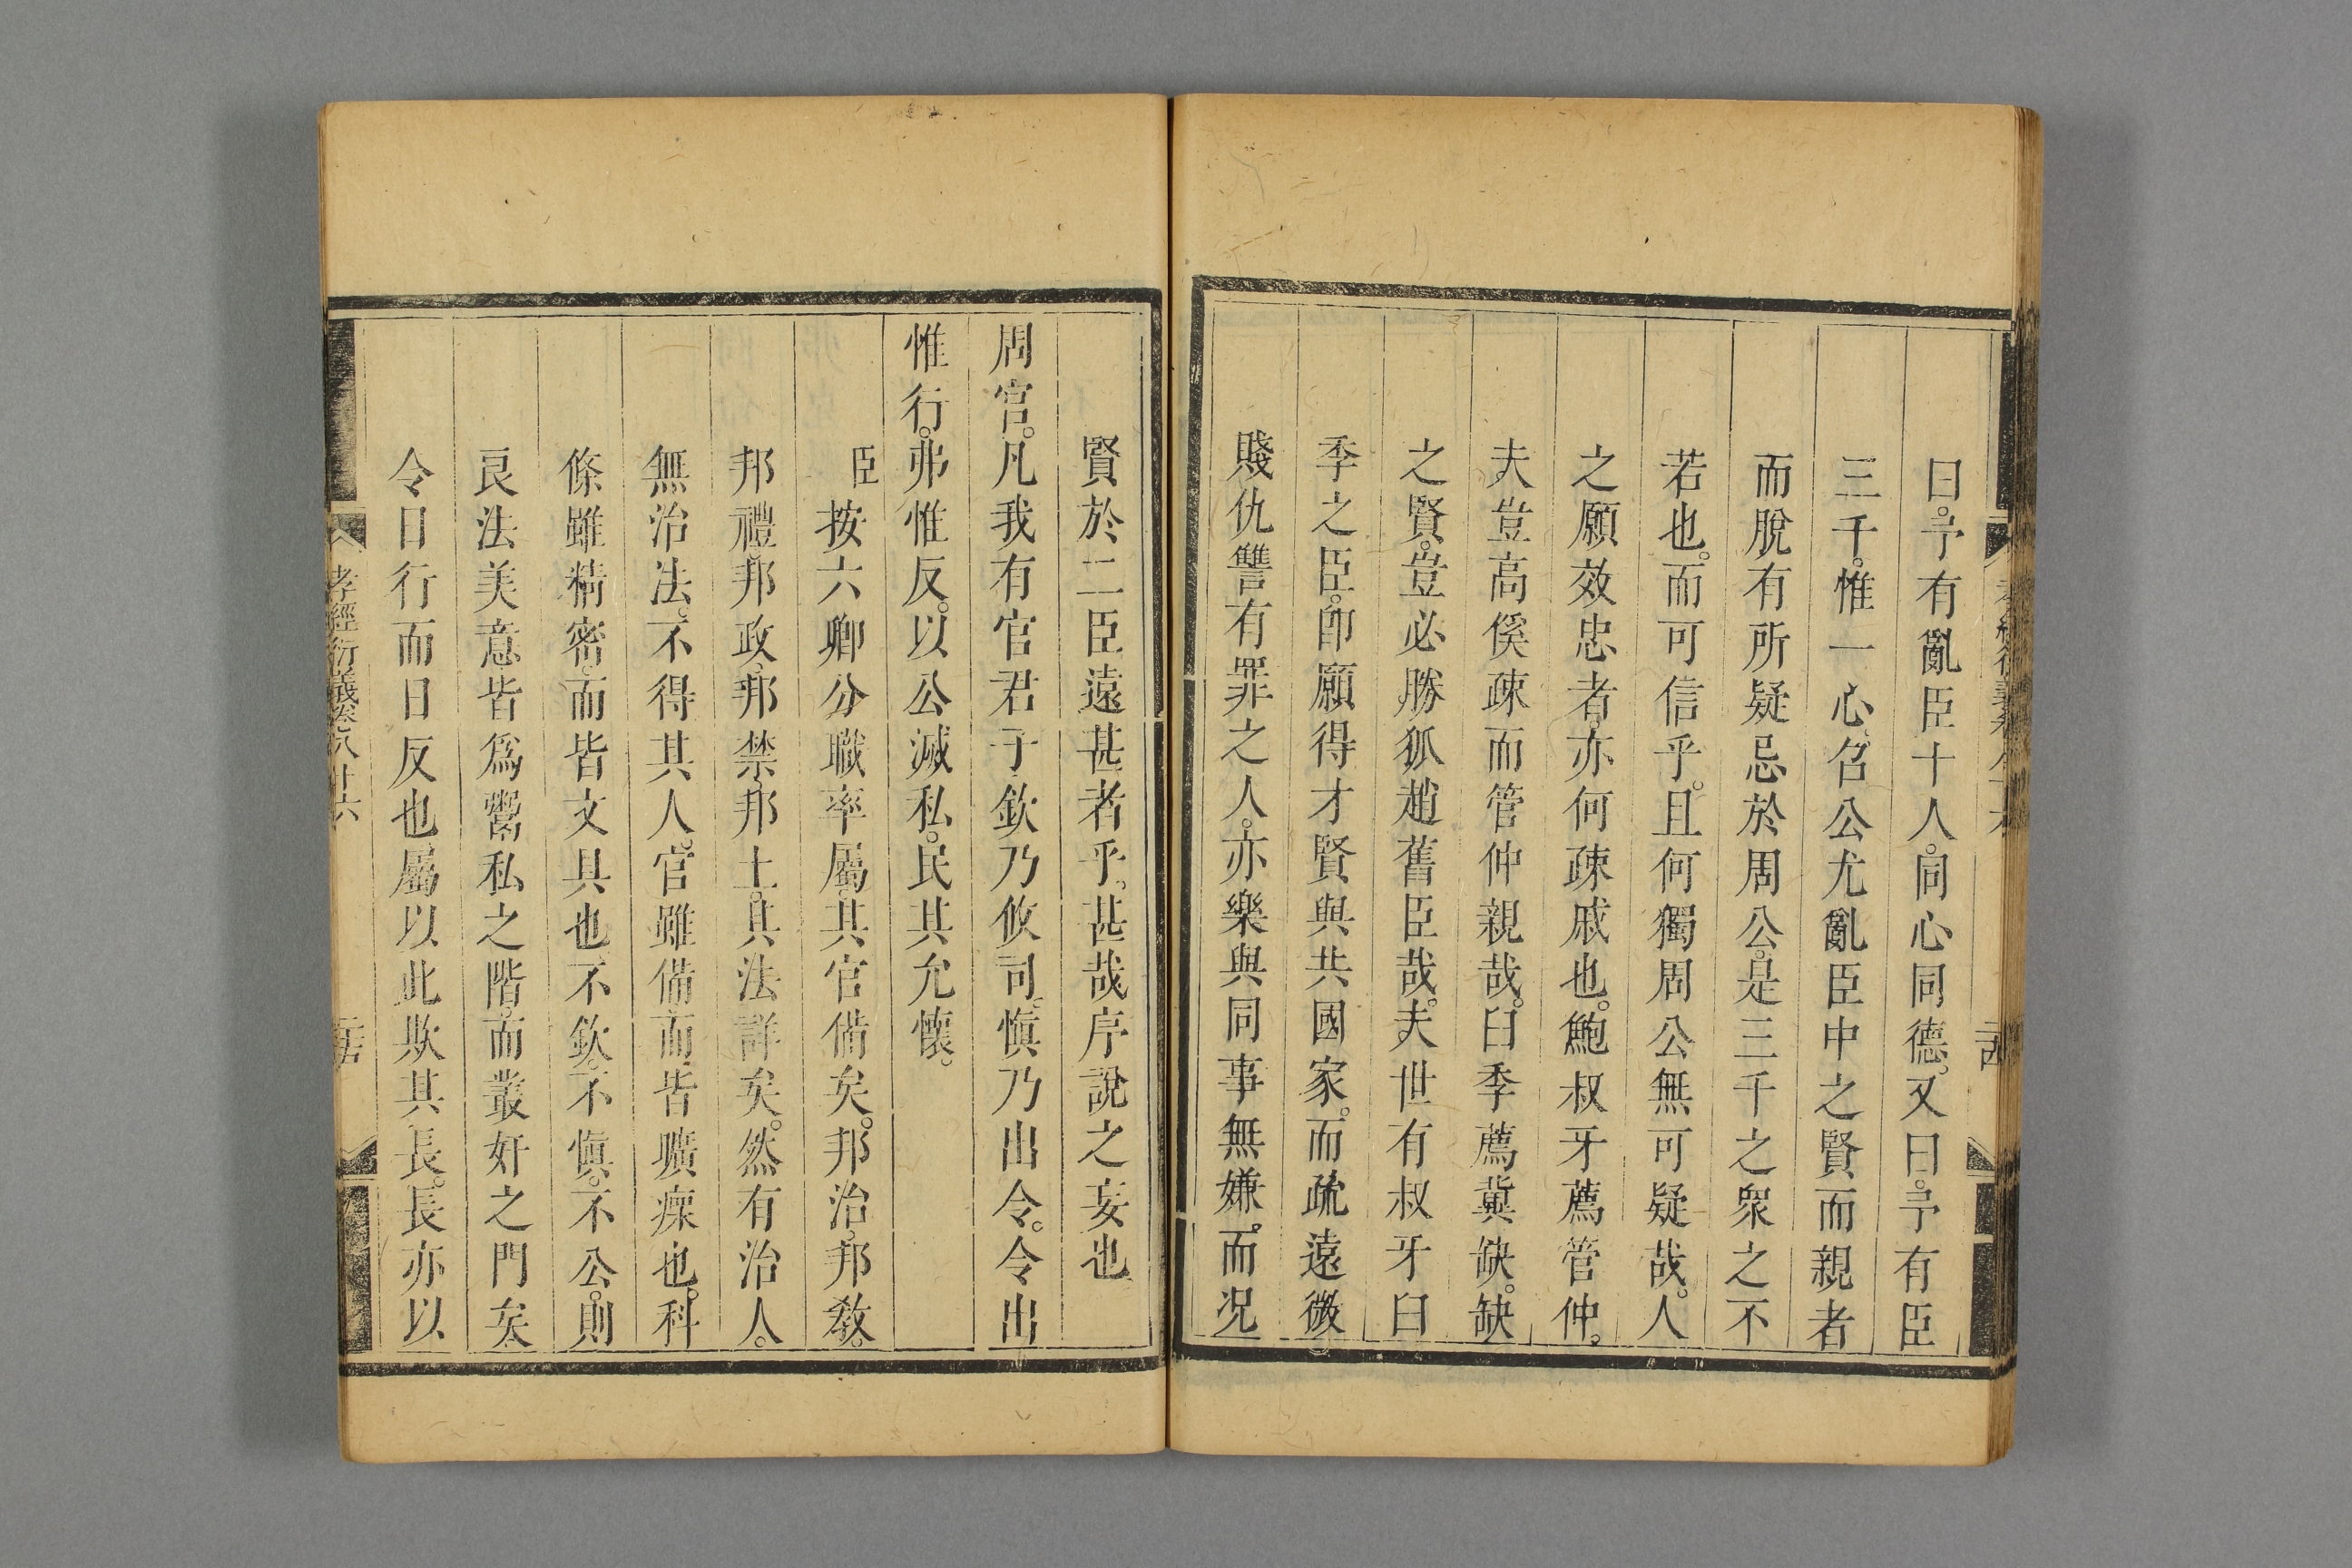 曰。予有亂臣十人。同心同德。又曰。予有臣
三千。惟一心。召公尤亂臣中之賢而親者
而脫有所疑忌於周公。是三千之衆之不
若也。而可信乎。且何獨周公無可疑哉。人
之願效忠者。亦何疎戚也。鮑叔牙薦管仲。
夫豈高傒疎而管仲親哉。臼季薦冀缺。缺
之賢。豈必勝狐趙舊臣哉。夫世有叔牙臼
季之臣。卽願得才賢與共國家。而疏遠微
賤仇讐有罪之人。亦樂與同事無嫌。而況
賢於二臣遠甚者乎。甚哉序說之妄也
周官。凡我有官君子欽乃攸司。愼乃出令。令出
惟行。弗惟反。以公滅私。民其允懷。
臣按六卿分職率屬。其官備矣。邦治。邦敎。
邦禮。邦政。邦禁。邦土。其法詳矣。然有治人。
無治法。不得其人。官雖備。而皆曠瘝也。科
條雖精密。而皆文具也。不欽。不愼。不公。則
良法美意。皆爲鬻私之階。而叢奸之門矣。
令日行而日反也。屬以此欺其長。長亦以
孝經衍義卷八十六